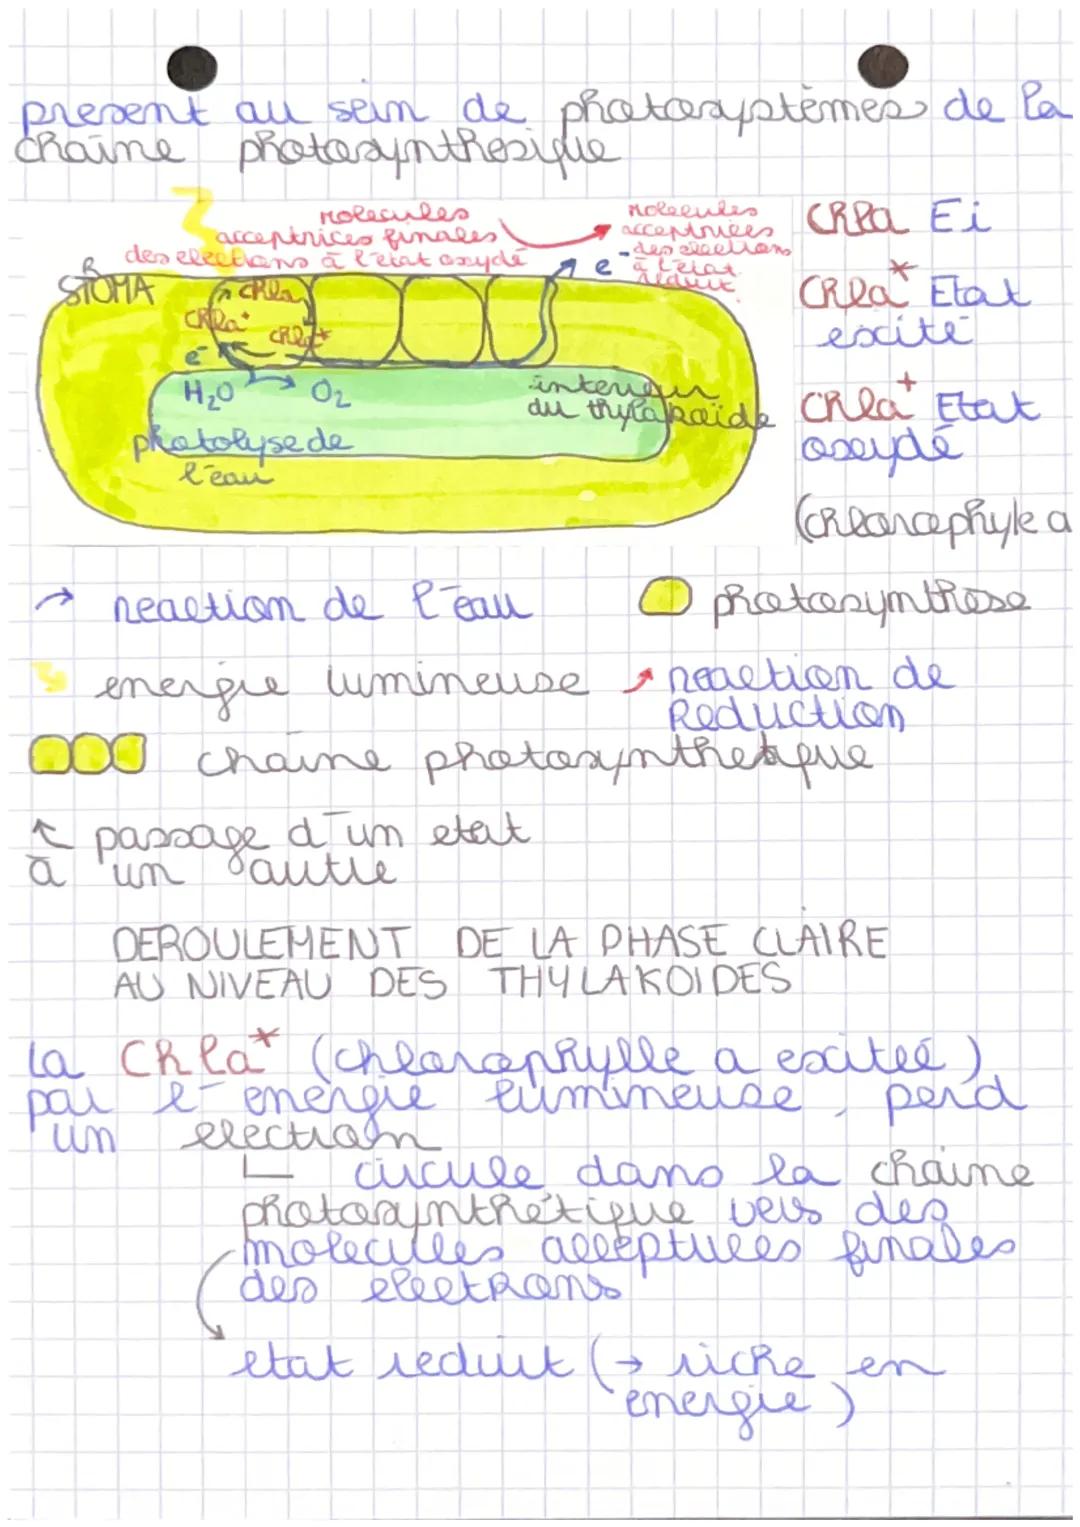 present au sein de photosystèmes de la
chaîne photosynthesique
Molecules
acceptrices finales
des electrons à l'état oxydé
Molecules
acceptrices
des electrons
à l'état
réduit
e-
STROMA
Chla
Chla+
Chla*
e-
H2O
O2
interieur
du thylakoïde
photolyse de
l'eau
Chla Ei
Chla* Etat
excité
Chla+ Etat
oxydé
(chlorophyle a
reaction de l'eau
photosynthese
energie lumineuse
reaction de
Reduction
chaine photosynthetique
passage d'un etat
à un autre
DEROULEMENT DE LA PHASE CLAIRE
AU NIVEAU DES THYLAKOIDES
La Chla* (chlorophylle a excitée)
par l'energie lumineuse, perd
un electron
circule dans la chaine
photosynthétique vers des
molecules acceptrices finales
des electrons
etat reduit (→ riche en
energie)